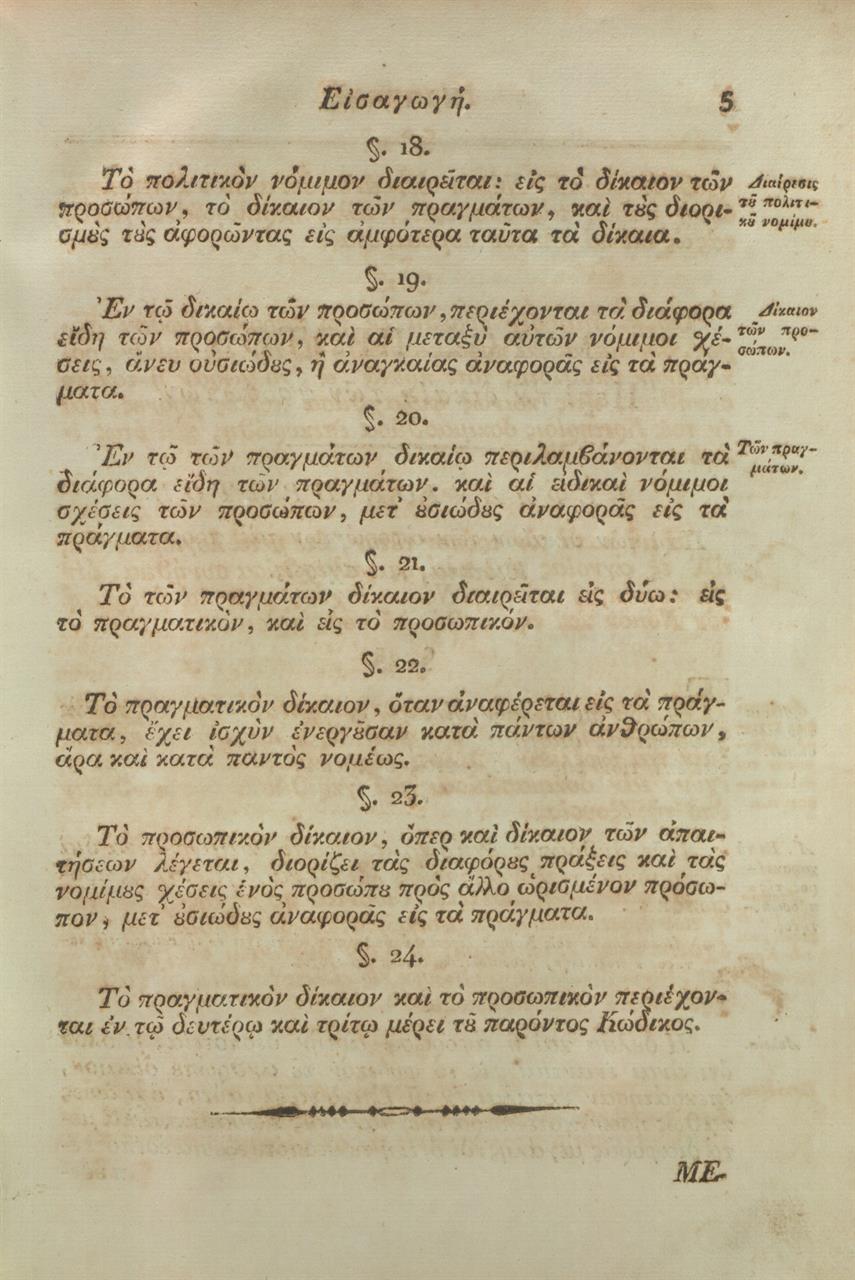 Εἰσαγωγή. 5
§. 18.
Τὸ πολιτικὸν νόμιμον διαιρεῖται: εἰς τὸ δίκαιον τῶν
προσώπων, τὸ δίκαιον τῶν πραγμάτων, καὶ τȣ̀ς διορι-
σμȣ̀ς τȣ̀ς ἀφορῶντας εἰς ἀμφότερα ταῦτα τὰ δίκαια.
Διαίρεσις
τȣ͂ πολιτι-
κȣ͂ νομίμȣ.
§. 19.
Ἐν τῷ δικαίῳ τῶν προσώπων, περιέχονται τὰ διάφορα
εἴδη τῶν προσώπων, καὶ αἱ μεταξὺ αὐτῶν νόμιμοι χέ-
σεις, ἄνευ οὐσιώδȣς, ἢ ἀναγκαίας ἀναφορᾶς εἰς τὰ πράγ-
ματα.
Δίκαιον
τῶν προ-
σώπων.
§. 20.
Ἐν τῷ τῶν πραγμάτων δικαίῳ περιλαμβάνονται τὰ
διάφορα εἴδη τῶν πραγμάτων. καὶ αἱ εἰδικαὶ νόμιμοι
σχέσεις τῶν προσώπων, μετ' ȣ̓σιώδȣς ἀναφορᾶς εἰς τὰ
πράγματα.
Τῶν πραγ-
μάτων.
§. 21.
Τὸ τῶν πραγμάτων δίκαιον διαιρεῖται εἰς δύω: εἰς
τὸ πραγματικὸν, καὶ εἰς τὸ προσωπικόν.
§. 22.
Τὸ πραγματικὸν δίκαιον, ὅταν ἀναφέρεται εἰς τὰ πράγ-
ματα, ἔχει ἰσχὺν ἐνεργȣ͂σαν κατὰ πάντων ἀνθρώπων,
ἄρα καὶ κατὰ παντὸς νομέως.
§. 23.
Τὸ προσωπικὸν δίκαιον, ὅπερ καὶ δίκαιον τῶν ἀπαι-
τήσεων λέγεται, διορίζει τὰς διαφόρȣς πράξεις καὶ τὰς
νομίμȣς χέσεις ἑνὸς προσώπȣ πρὸς ἄλλο ὡρισμένον πρόσω-
πον, μετ' ȣ̓σιώδȣς ἀναφορᾶς εἰς τὰ πράγματα.
§. 24.
Τὸ πραγματικὸν δίκαιον καὶ τὸ προσωπικὸν περιέχον-
ται ἐν τῷ δευτέρῳ καὶ τρίτῳ μέρει τȣ͂ παρόντος Κώδικος.
ΜΕ-